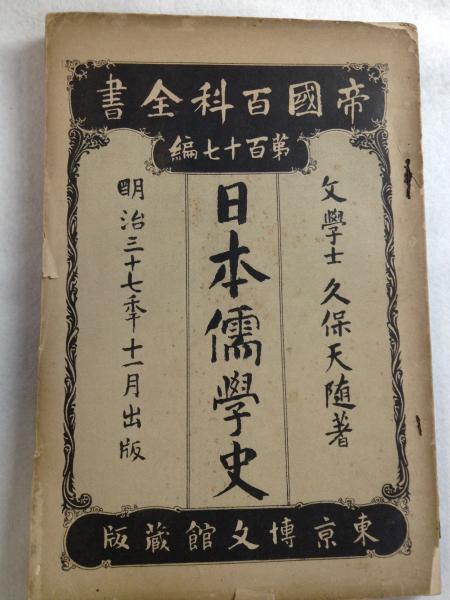 帝國百科全書
第百十七編
文學士 久保天随著
日本儒學史
明治三十七年十一月出版
東京博文館藏版